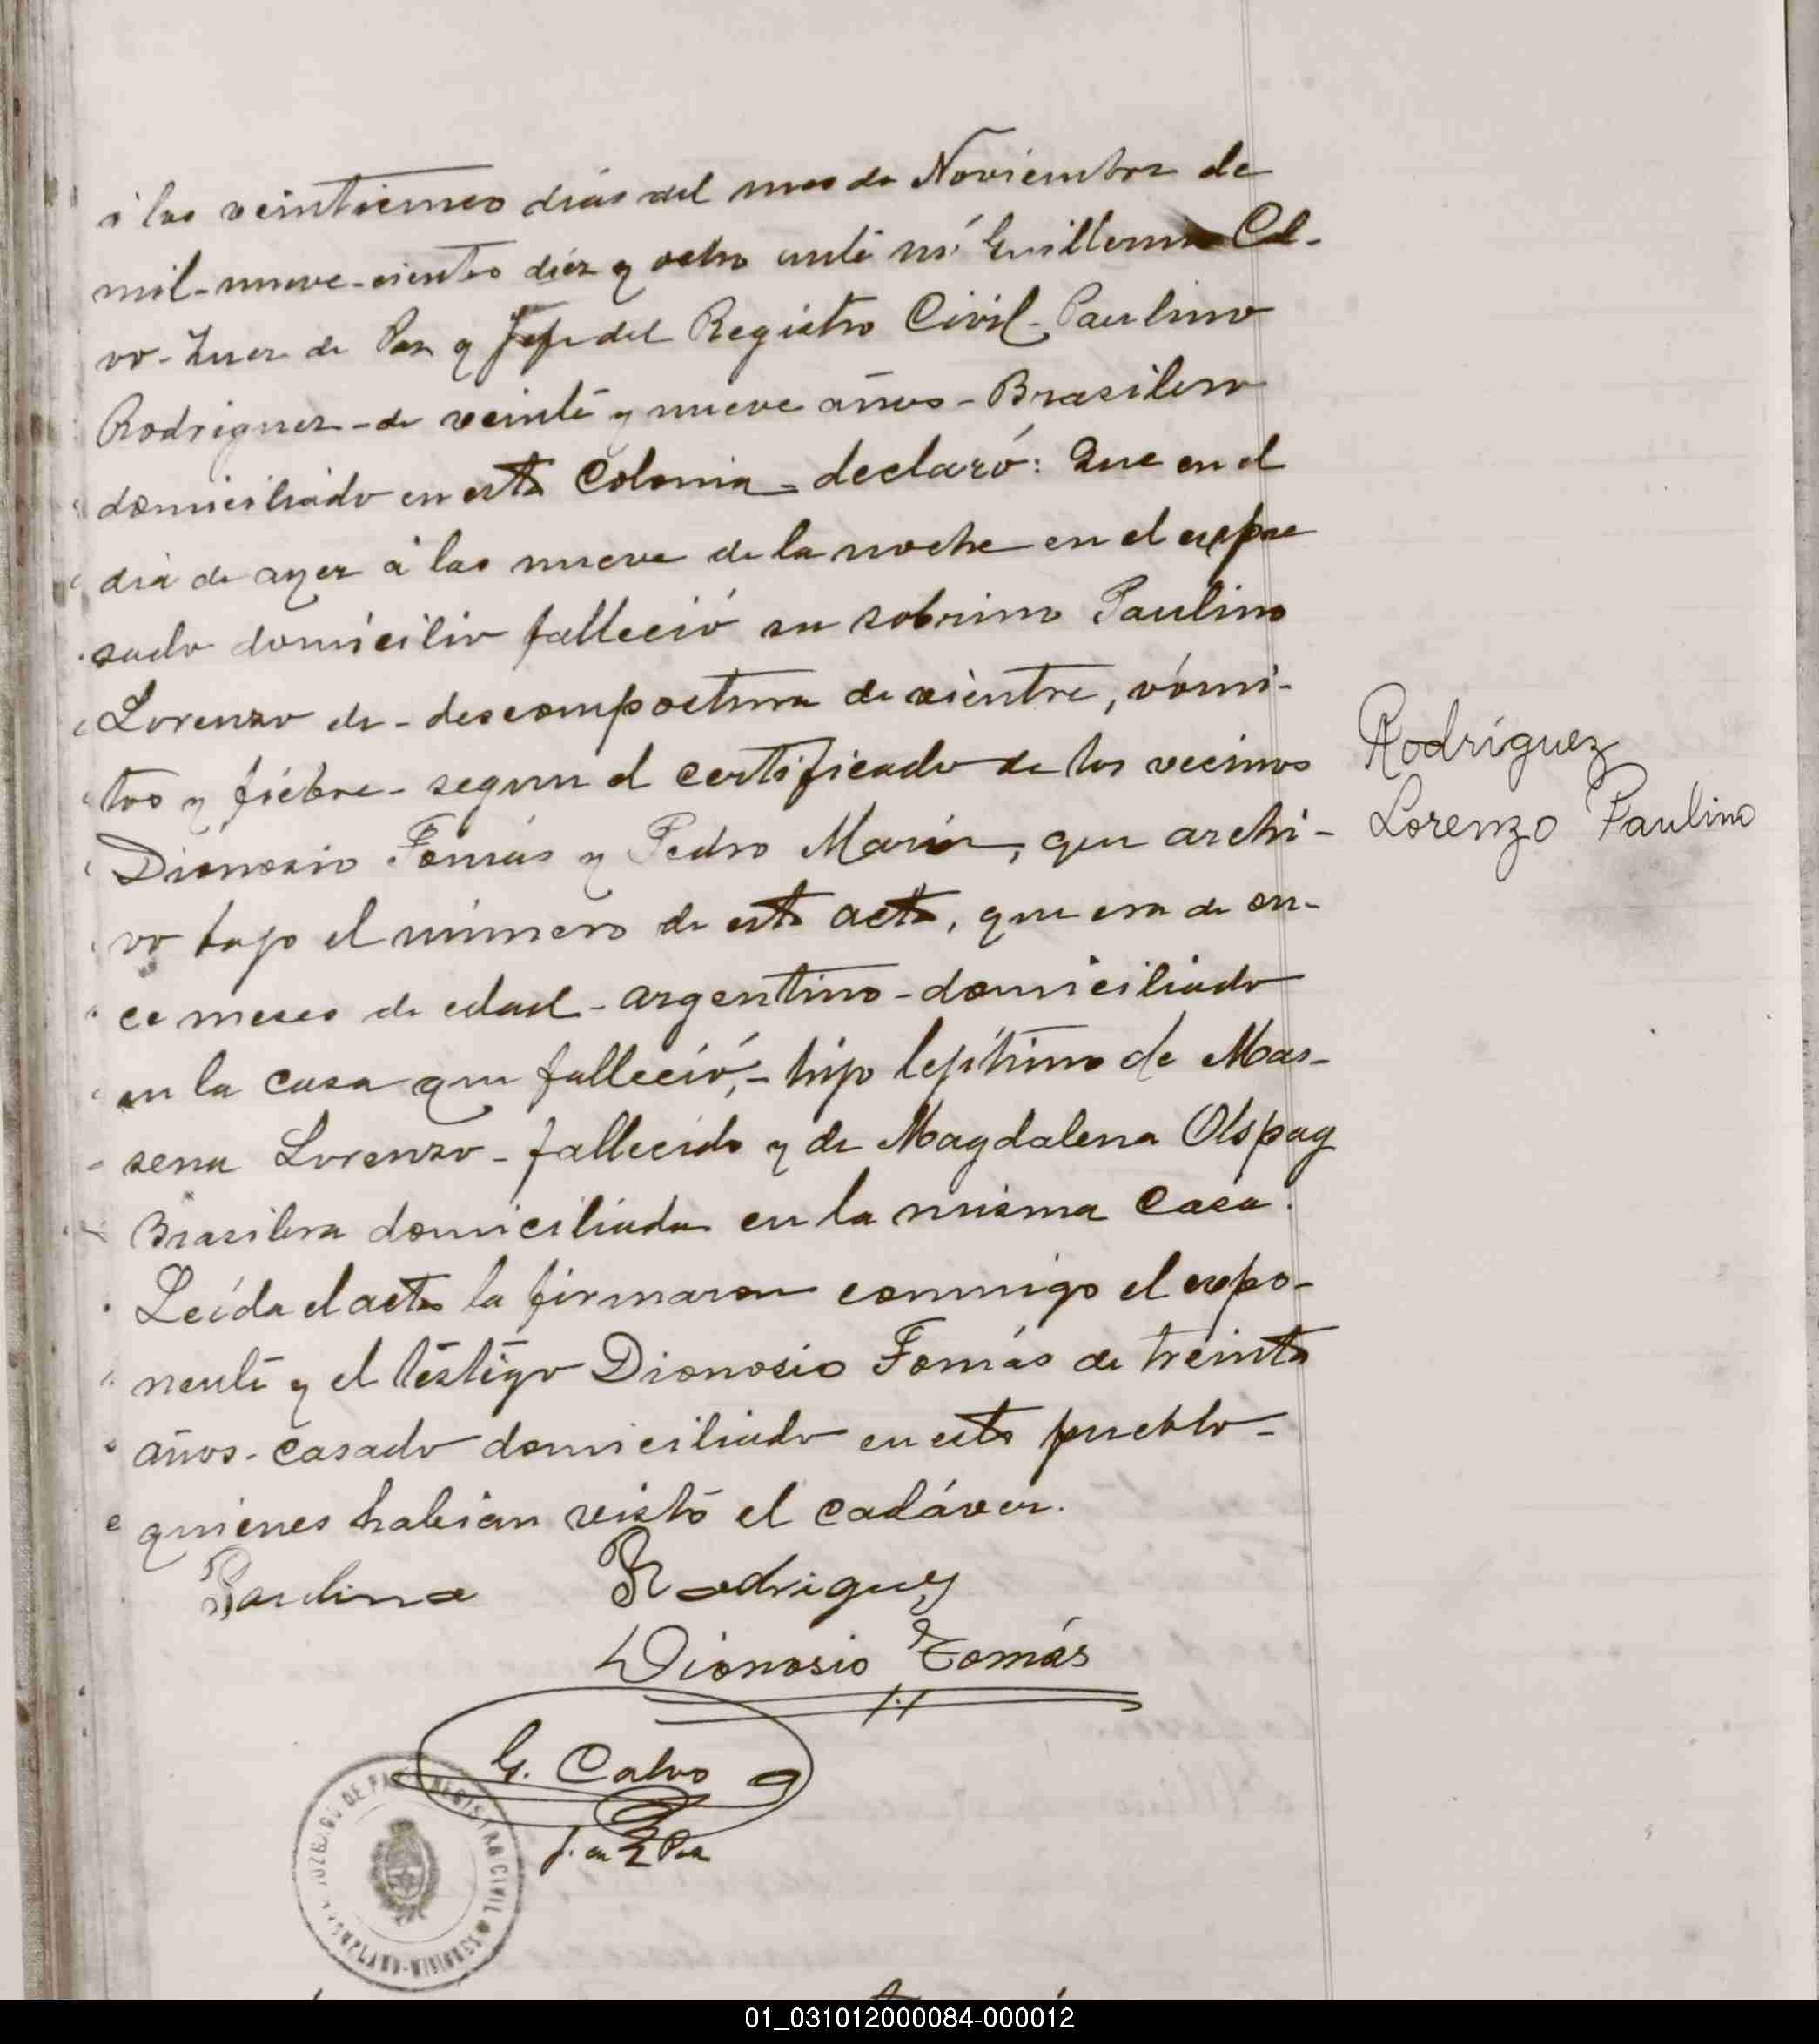 á los veinticinco dias del mes de Noviembre de
mil-nueve-cientos diez y ocho ante mi Guillermo Cal-
vo-Juez de Paz y Jefe del Registro Civil-Paulino
Rodriguez-de veinte y nueve años-Brasilero
domiciliado en esta Colonia-declaró: Que en el
dia de ayer á las nueve de la noche en el expre
sado domicilio falleció su sobrino Paulino
Lorenzo de-descompostura de vientre, vómi-
tos y fiebre-segun el certificado de los vecinos
Dionosio Tomás y Pedro Marin, que archi-
vo bajo el número de esta acta, que era de on-
ce meses de edad-argentino-domiciliado
en la casa que falleció,-hijo lejítimo de Mas-
sena Lorenzo-fallecido y de Magdalena Olspag
Brasilera domiciliada en la misma casa.
Leída el acta la firmaron conmigo el expo-
nente y el testigo Dionosio Tomás de treinta
años-casado domiciliado en este pueblo-
quienes habian visto el cadáver.
Rodríguez
Lorenzo Paulino
Paulino Rodriguez
Dionosio Tomás
G. Calvo
J. de Paz
JUZGADO DE PAZ Y REGISTRO CIVIL
MISIONES
01_031012000084-000012